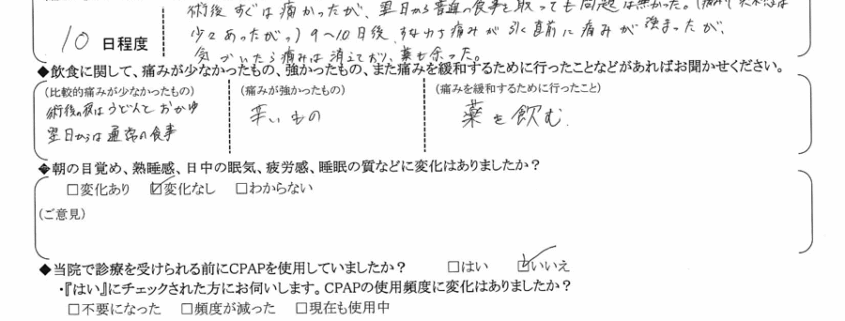 術後すぐは痛かったが、翌日から普通の食事を取っても問題は無かった。(痛み
10 日程度 少々あったがっ) 9〜10日後、すなわち痛みが引く直前に痛みが強まったが、
気がついたら痛みは消えており、薬も余った。
◆飲食に関して、痛みが少なかったもの、強かったもの、また痛みを緩和するために行ったことなどがあればお聞かせください。
(比較的痛みが少なかったもの) (痛みが強かったもの) (痛みを緩和するために行ったこと)
術後の夜はうどんと おかゆ 辛いもの 薬を飲む.
翌日からは通常の食事
◆朝の目覚め、熟睡感、日中の眠気、疲労感、睡眠の質などに変化はありましたか?
□変化あり ☑変化なし □わからない
(ご意見)
◆当院で診療を受けられる前にCPAPを使用していましたか? □はい ☑いいえ
・『はい』にチェックされた方にお伺いします。CPAPの使用頻度に変化はありましたか?
□不要になった □頻度が減った □現在も使用中